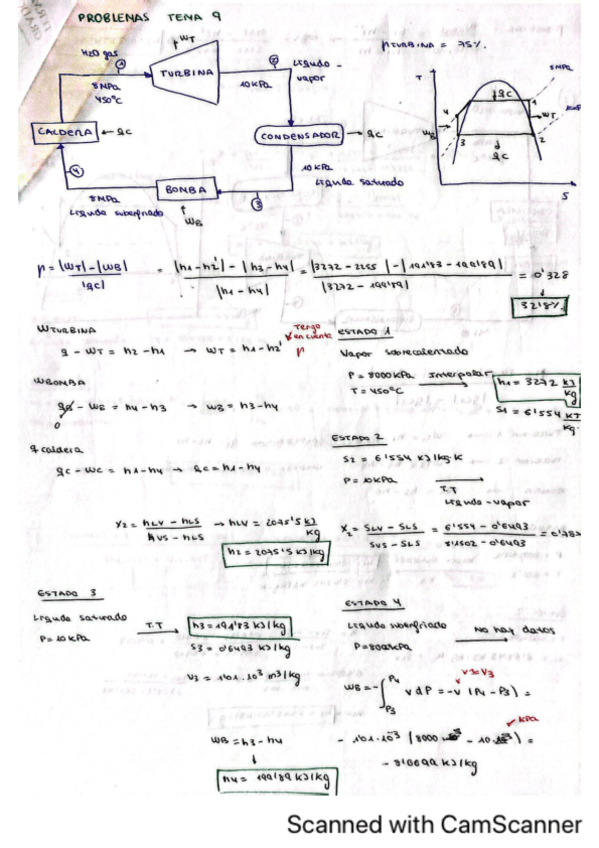 PROBLEMAS TEMA 9
WT
H2O gas
①
TURBINA
②
Líquido -
vapor
ηTURBINA = 75%
8MPa
450ºC
10KPa
CALDERA
qc
CONDENSADOR
qc
④
10 KPa
Líquido saturado
BOMBA
③
8MPa
Líquido subenfriado
WB
T
8MPa
qc
4
1
WT
WB
3
2
qc
S
η = |WT| - |WB| / |qc| = |h1 - h2'| - |h3 - h4| / |h1 - h4| = |3272 - 2255| - |191'83 - 199'89| / |3272 - 199'89| = 0'328
32'8%
WTURBINA
q - WT = h2 - h1 → WT = h1 - h2'
Tengo
en cuenta
η
WBOMBA
qB - WB = h4 - h3 → WB = h3 - h4
0
q caldera
qc - Wc = h1 - h4 → qc = h1 - h4
ESTADO 1
Vapor sobrecalentado
P = 8000 kPa
T = 450ºC
Interpolar
h1 = 3272 kJ/kg
S1 = 6'554 kJ/kg.
ESTADO 2
S2 = 6'554 kJ/kg·K
P = 10 kPa
T.T
Líquido-vapor
X2 = hLV - hLS / hVS - hLS → hLV = 2075'5 kJ/kg
h2 = 2075'5 kJ/kg
X2 = SLV - SLS / SVS - SLS = 6'554 - 0'6493 / 8'1502 - 0'6493
ESTADO 3
Líquido saturado
P = 10 kPa
T.T
h3 = 191'83 kJ/kg
S3 = 0'6493 kJ/kg
V3 = 1'01·10³ m3/kg
WB = h3 - h4
h4 = 199'89 kJ/kg
ESTADO 4
Líquido subenfriado
No hay datos
V4=V3
WB = - ∫ P4 P3 v dP = -v (P4 - P3) =
kPa
- 1'01·10-3 (8000 - 10) =
Scanned with CamScanner